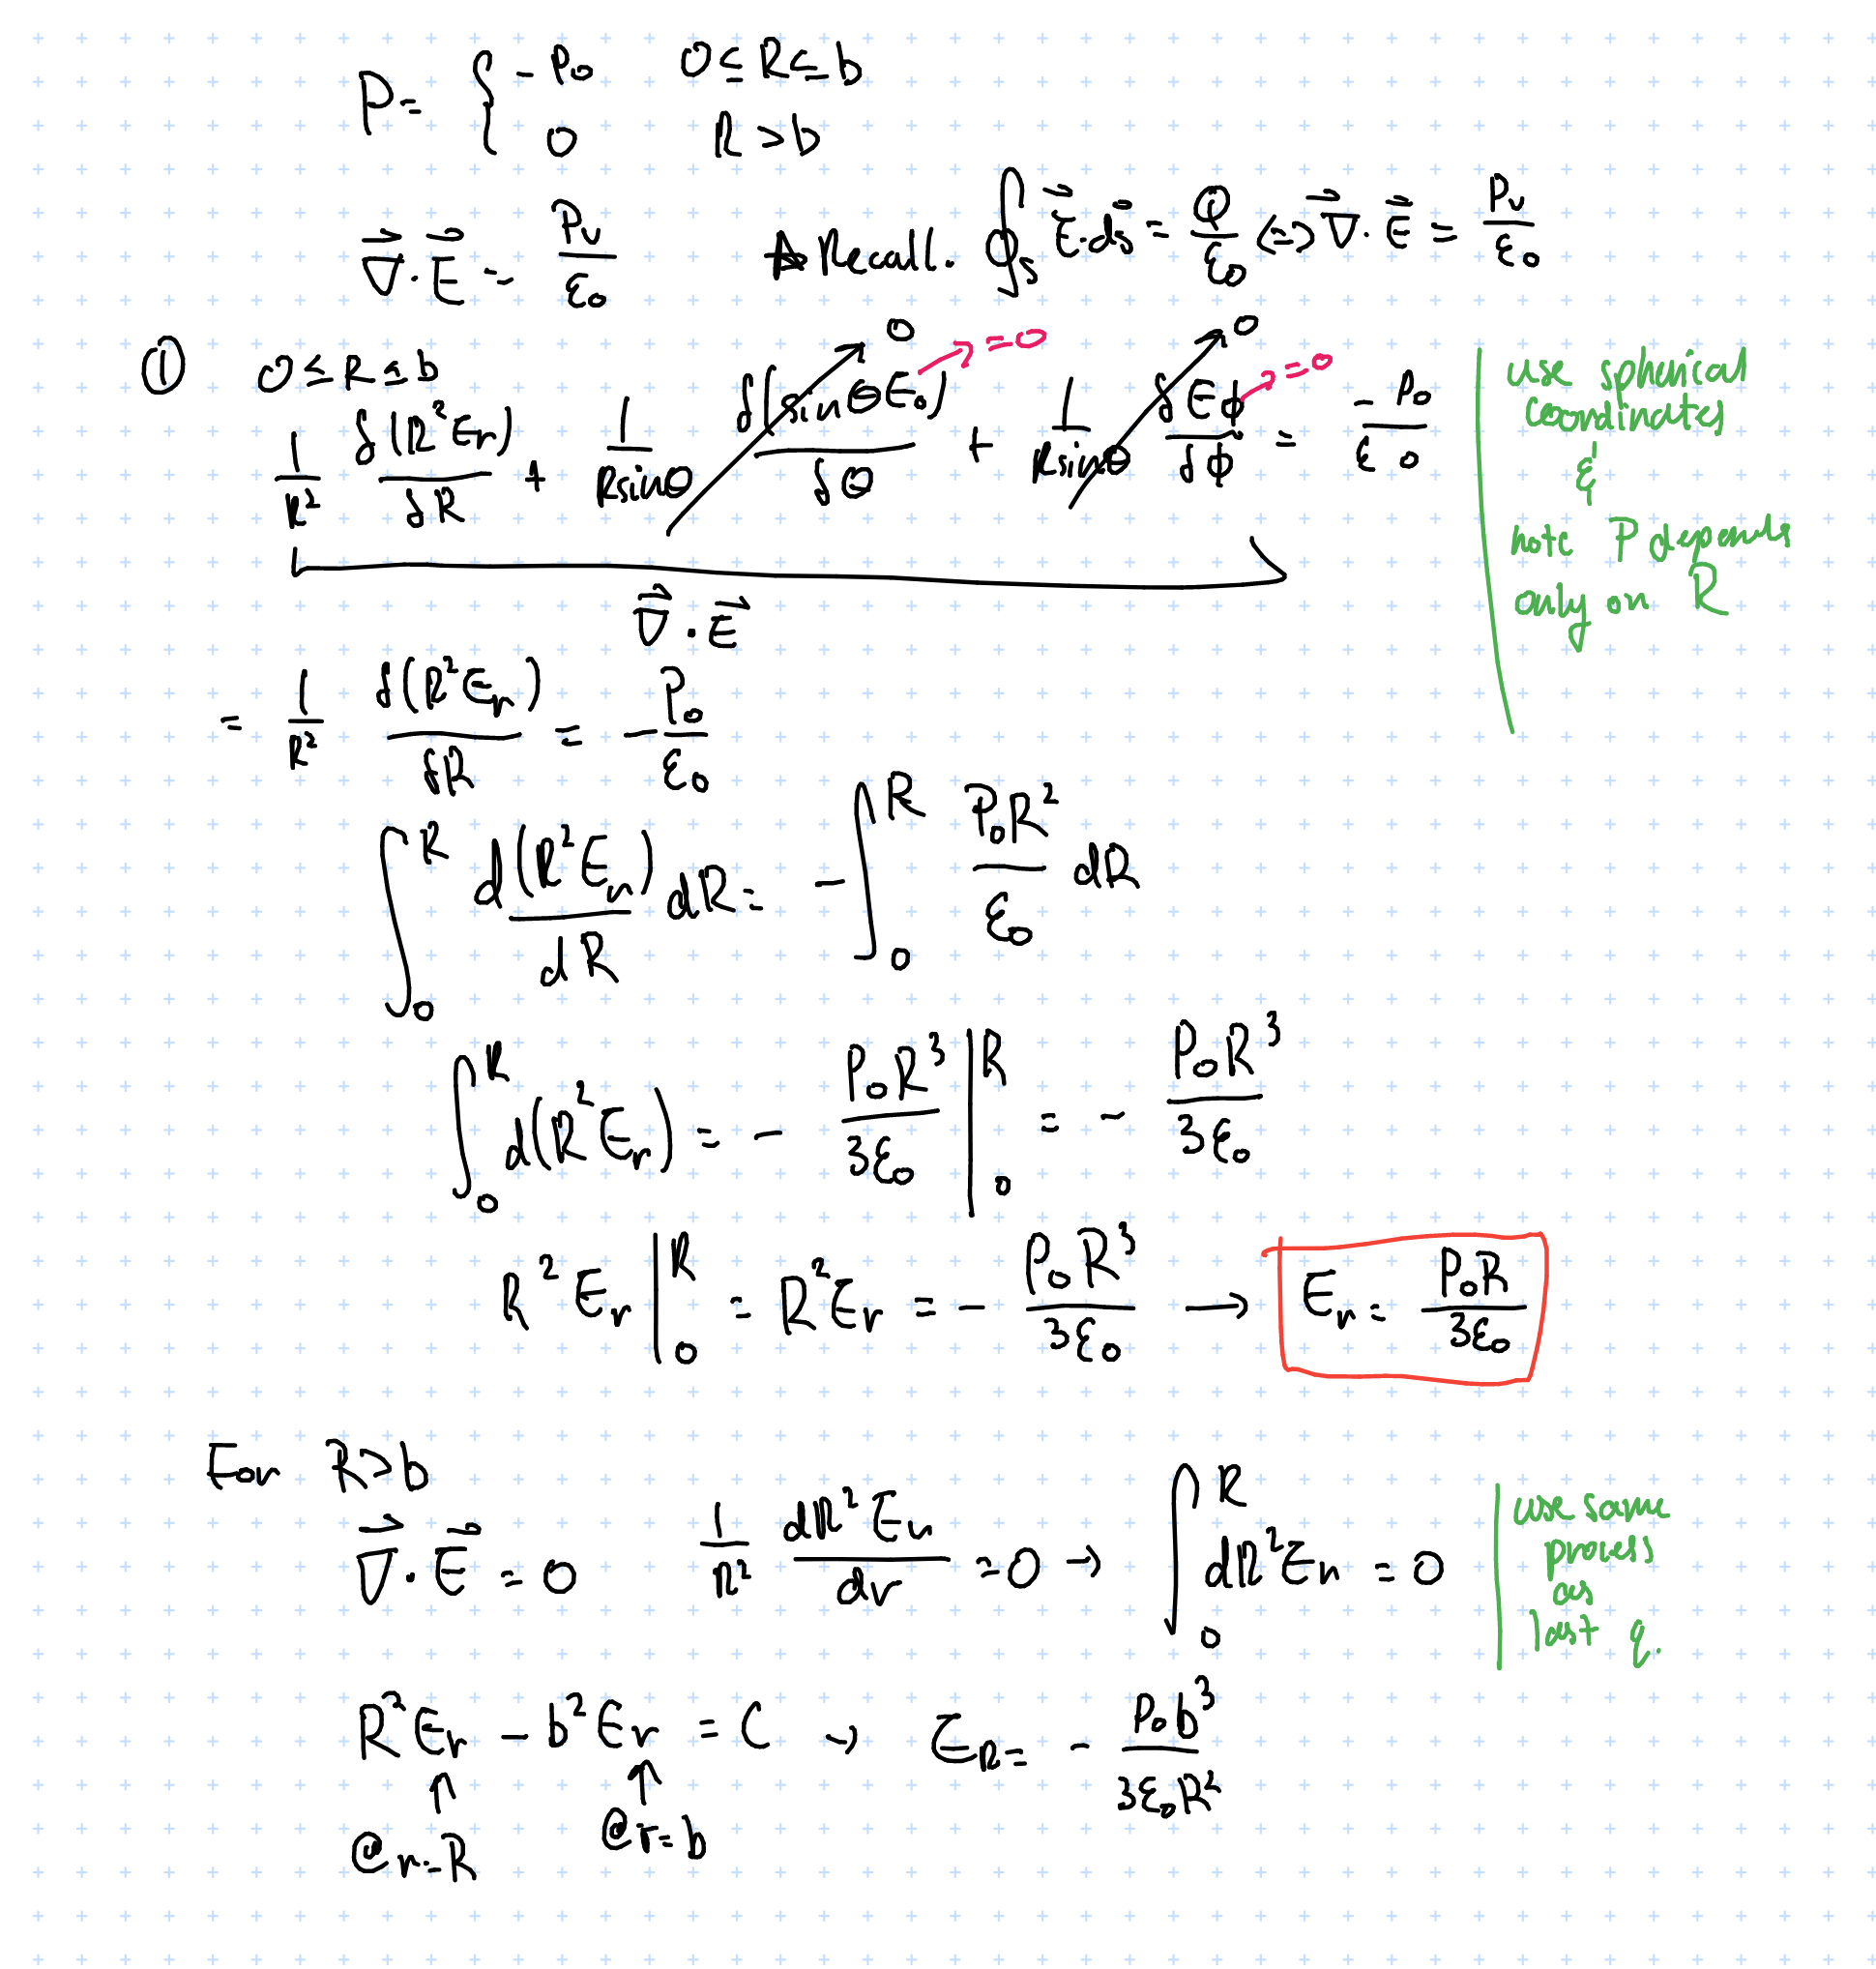 P = { -P₀   0 ≤ R ≤ b
0   R > b
∇⃗·E⃗ = Pᵥ/ε₀   ☆ Recall. ∮ₛ E⃗·ds⃗ = Q/ε₀ ⇔ ∇⃗·E⃗ = Pᵥ/ε₀
① 0 ≤ R ≤ b
1/R² δ(R²Er)/δR + 1/(Rsinθ) δ(sinθEθ)/δθ → 0 + 1/(Rsinθ) δEϕ/δϕ → 0 = -P₀/ε₀
→ = 0
→ = 0
use spherical
coordinates
&
note P depends
only on R
∇⃗·E⃗
= 1/R² δ(R²Er)/δR = -P₀/ε₀
∫₀ᴿ d(R²Er)/dR dR = -∫₀ᴿ P₀R²/ε₀ dR
∫₀ᴿ d(R²Er) = - P₀R³/3ε₀ |₀ᴿ = - P₀R³/3ε₀
R²Er |₀ᴿ = R²Er = - P₀R³/3ε₀ → Er = P₀R/3ε₀
For R>b
∇⃗·E⃗ = 0   1/R² dR²Er/dr = 0 → ∫₀ᴿ dR²Er = 0
use same
process
as
last q.
R²Er - b²Er = C → E_R = - P₀b³/3ε₀R²
↑ ↑
@r=R @r=b